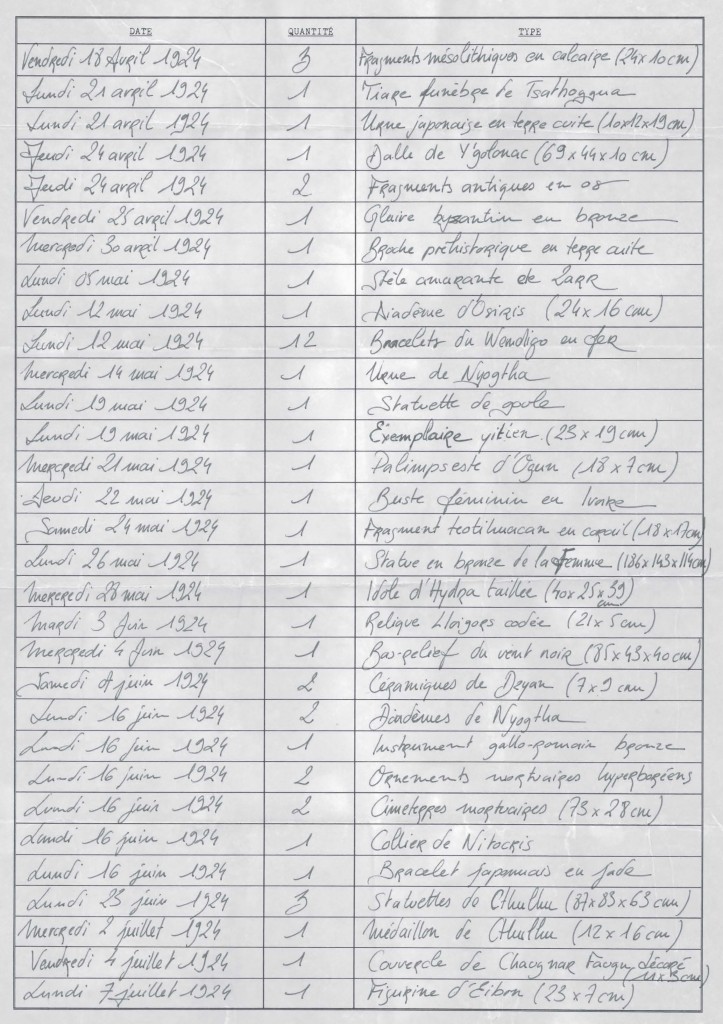 DATE QUANTITÉ TYPE
Vendredi 18 Avril 1924 3 Fragments mésolithiques en calcaire (24x10cm)
Lundi 21 avril 1924 1 Tiare funèbre de Tsathoggua
Lundi 21 avril 1924 1 Urne japonaise en terre cuite (10x12x19cm)
Jeudi 24 avril 1924 1 Dalle de Y'golonac (69x44x10cm)
Jeudi 24 avril 1924 2 Fragments antiques en or
Vendredi 25 avril 1924 1 Glaive byzantin en bronze
Mercredi 30 avril 1924 1 Broche préhistorique en terre cuite
Lundi 05 mai 1924 1 Stèle amarante de Zarr
Lundi 12 mai 1924 1 Diadème d'Osiris (24x16cm)
Lundi 12 mai 1924 12 Bracelets du Wendigo en fer
Mercredi 14 mai 1924 1 Urne de Nyogtha
Lundi 19 mai 1924 1 Statuette de goule
Lundi 19 mai 1924 1 Exemplaire yitien (23x19cm)
Mercredi 21 mai 1924 1 Palimpseste d'Ogun (18x7cm)
Jeudi 22 mai 1924 1 Buste féminin en Ivoire
Samedi 24 mai 1924 1 Fragment teotihuacan en corail (18x17cm)
Lundi 26 mai 1924 1 Statue en bronze de la Femme (186x143x114cm)
Mercredi 28 mai 1924 1 Idole d'Hydra taillée (40x25x39
cm)
Mardi 3 Juin 1924 1 Relique Lloigors codée (21x5cm)
Mercredi 4 Juin 1924 1 Bas-relief du vent noir (85x43x40cm)
Samedi juin 1924 2 Céramiques de Dzyan (7x9cm)
Lundi 16 juin 1924 2 Diadèmes de Nyogtha
Lundi 16 juin 1924 1 Instrument gallo-romain bronze
Lundi 16 juin 1924 2 Ornements mortuaires hyperboréens
Lundi 16 juin 1924 2 Cimeterres mortuaires (73x28cm)
Lundi 16 juin 1924 1 Collier de Nitocris
Lundi 16 juin 1924 1 Bracelet japonnais en jade
Lundi 23 juin 1924 3 Statuettes de Cthulhu (87x83x63cm)
Mercredi 2 juillet 1924 1 Médaillon de Cthulhu (12x16cm)
Vendredi 4 juillet 1924 1 Couvercle de Chaugnar Faugn décoré
(11x3cm)
Lundi 7 juillet 1924 1 Figurine d'Eibon (23x7cm)